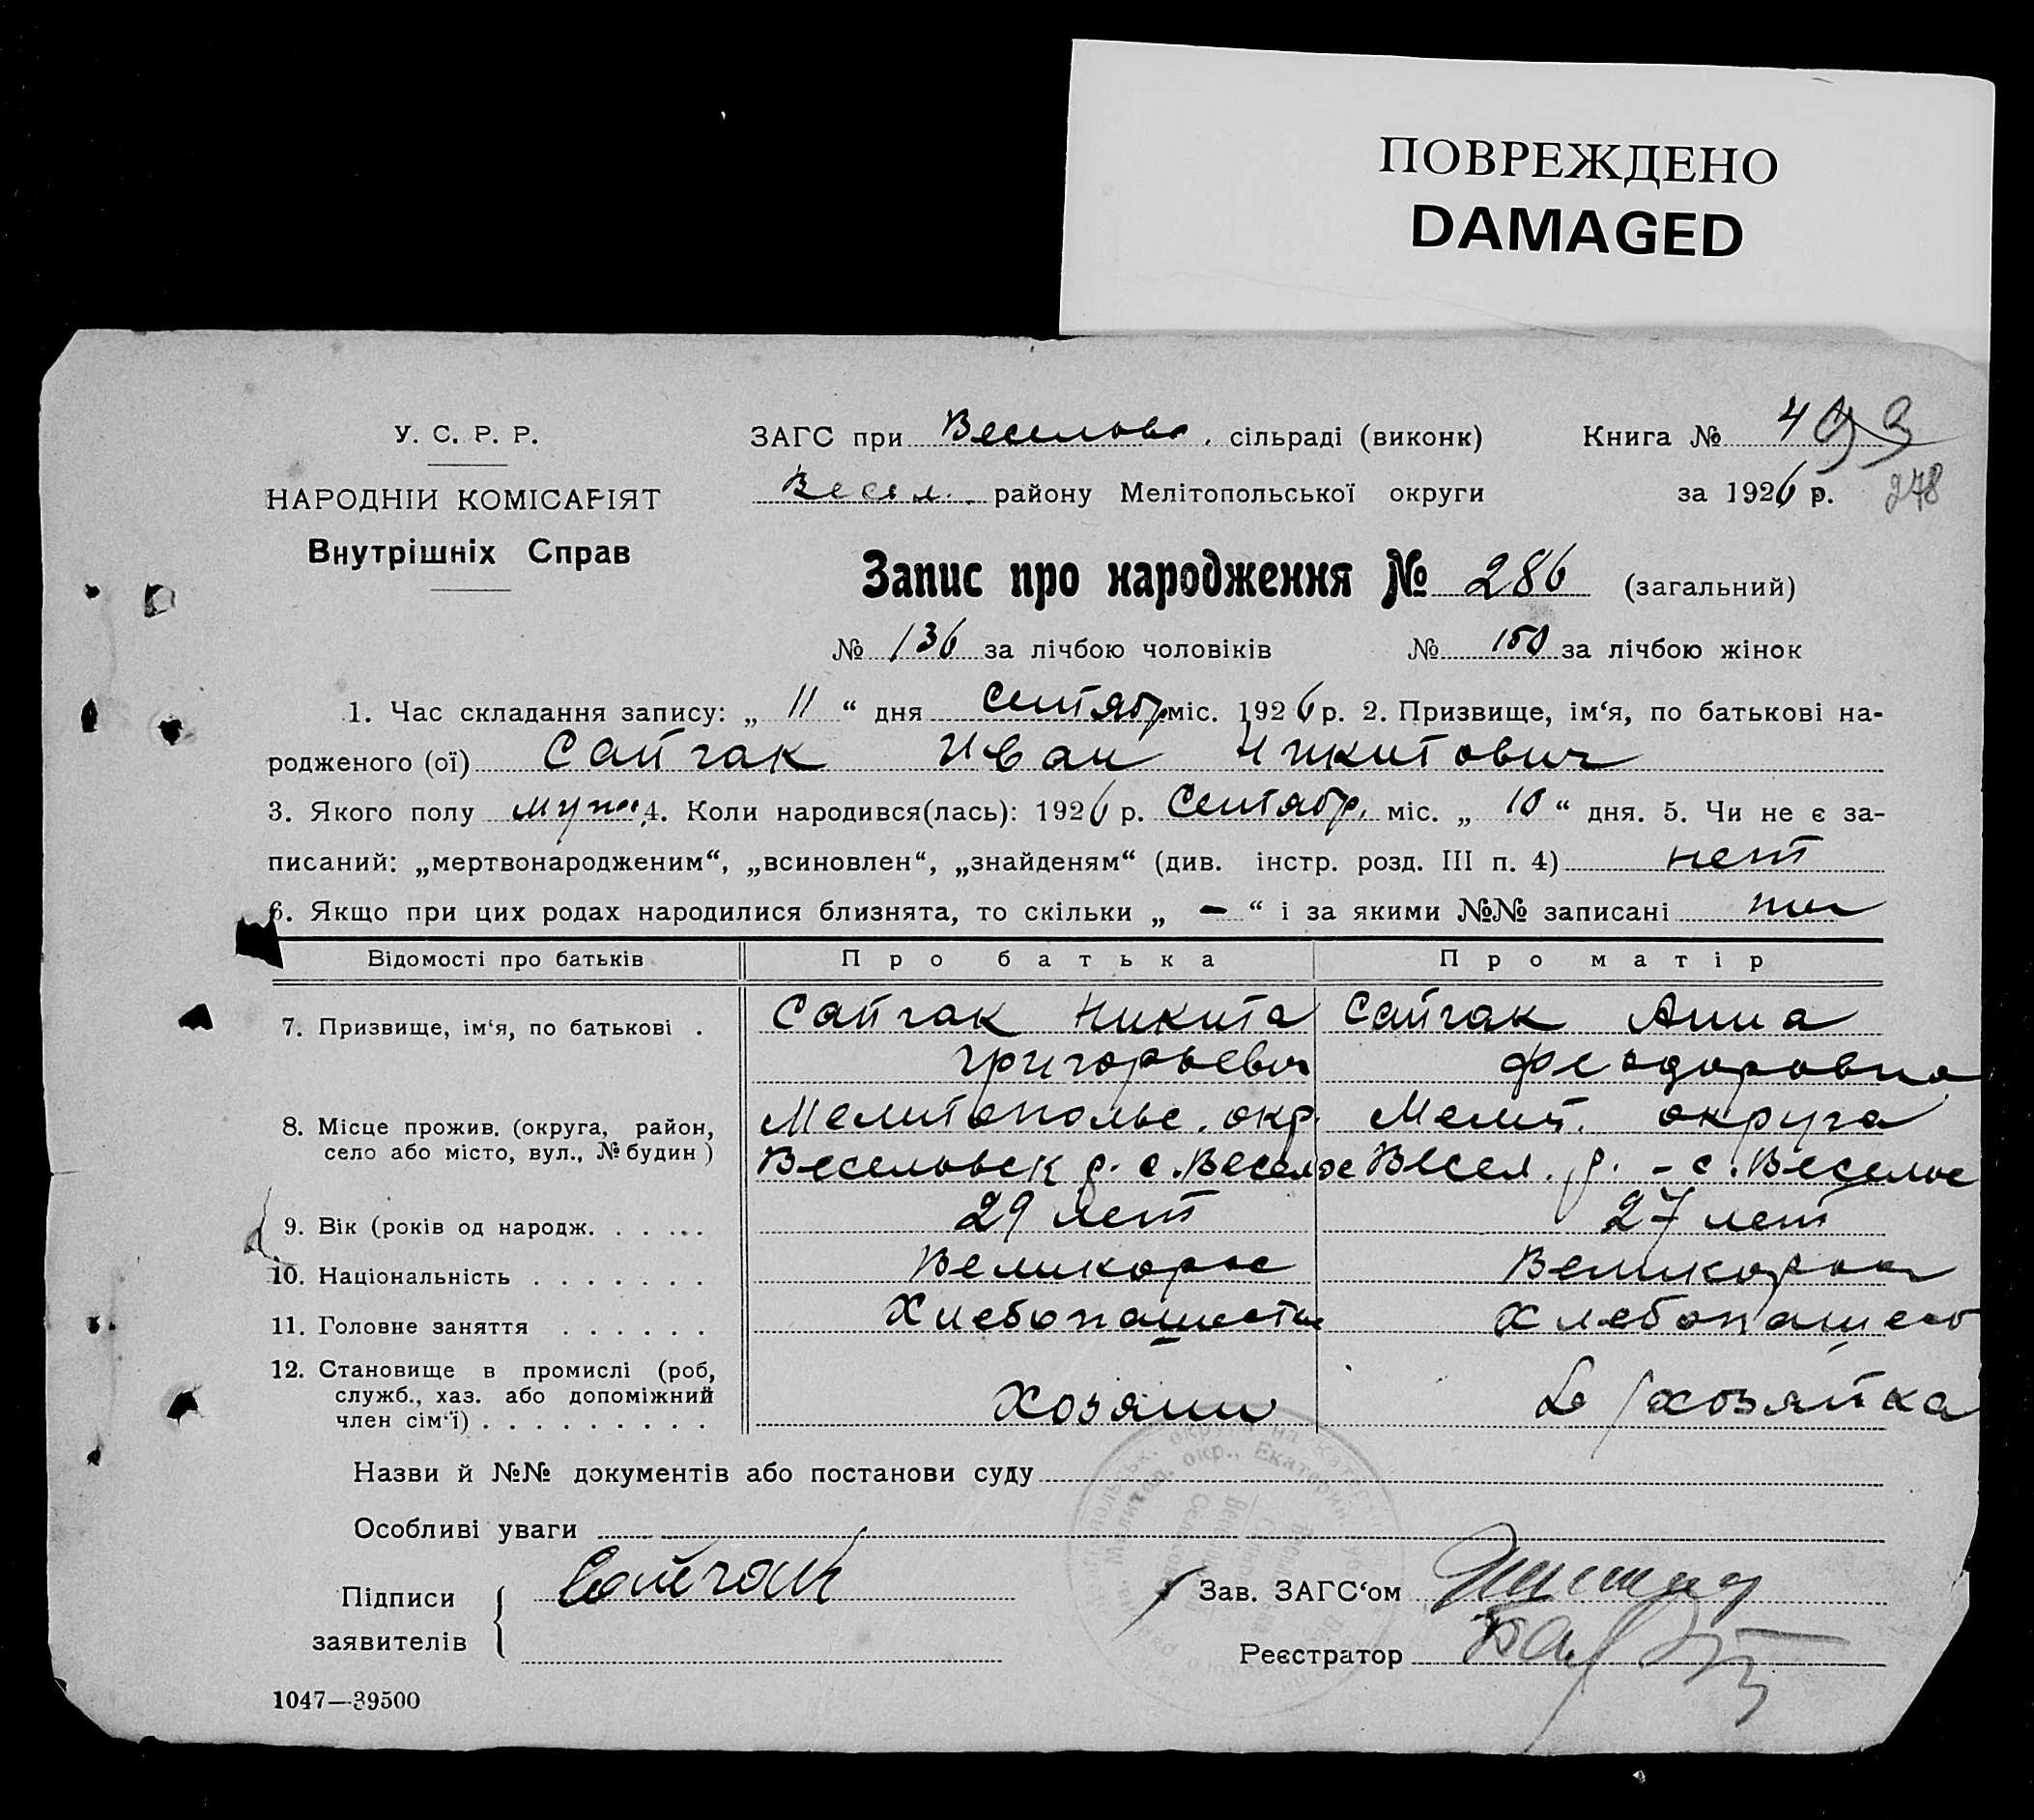 ПОВРЕЖДЕНО
DAMAGED
У. С. Р. Р.
НАРОДНІЙ КОМІСАРІЯТ
Внутрішніх Справ
ЗАГС при Веселовс. сільраді (виконк)
Весел. району Мелітопольської округи
Книга № 4
за 1926 р. 278
Запис про народження № 286 (загальний)
№ 136 за лічбою чоловіків № 150 за лічбою жінок
1. Час складання запису: „ 11 “ дня Сентябр міс. 1926 р. 2. Призвище, ім‘я, по батькові на-
родженого (ої) Сайгак Иван Никитович
3. Якого полу муж. 4. Коли народився(лась): 1926 р. Сентябр. міс. „ 10 “ дня. 5. Чи не є за-
писаний: „мертвонародженим“, „всиновлен“, „знайденям“ (див. інстр. розд. III п. 4) нет
6. Якщо при цих родах народилися близнята, то скільки „ – “ і за якими №№ записані
Відомості про батьків Про батька Про матір
7. Призвище, ім‘я, по батькові . Сайгак Никита Сайгак Анна
Григорьевич Феодоровна
8. Місце прожив. (округа, район, Мелитопольс. окр. Мелит. округа
село або місто, вул., № будин ) Веселовск р. с. Веселое Весел. р. - с. Веселое
9. Вік (років од народж. . . . . . 29 лет 27 лет
10. Національність . . . . . . . Великорос Великоросс
11. Головне заняття . . . . . . Хлебопашество Хлебопашество
12. Становище в промислі (роб,
служб., хаз. або допоміжний Хозяин хозяйка
член сім‘ї) . . . . . . . . .
Назви й №№ документів або постанови суду
Особливі уваги
Підписи Сайгак Зав. ЗАГС‘ом
заявителів Реєстратор
1047—39500